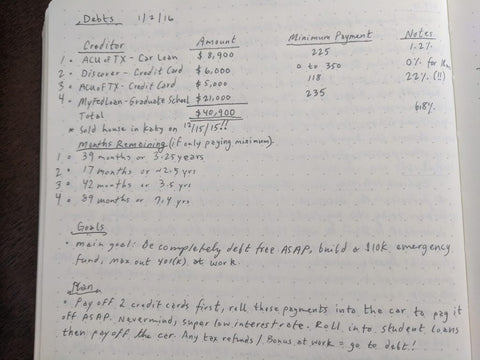 Debts 1/2/16
Creditor Amount Minimum Payment Notes
1 • ACU of TX - Car Loan $8,900 225 1.2%
2 • Discover - Credit Card $6,000 0 to 350 0% for
3 • ACU of TX - Credit Card $5,000 118 22% (!!)
4 • MyFedLoan - Graduate School $21,000 235 6.8%
Total $40,900
* Sold house in Katy on 12/15/15!!
Months Remaining (if only paying minimum)
1 • 39 months or 3.25 years
2 • 17 months or ~2.5 yrs
3 • 42 months or 3.5 yrs
4 • 89 months or 7.4 yrs
Goals
• main goal: Be completely debt free ASAP, build a $10K emergency
fund, max out 401(K) at work.
Plan
• Pay off 2 credit cards first, roll those payments into the car to pay it
off ASAP. Nevermind, super low interest rate. Roll into student loans
then pay off the car. Any tax refunds / Bonus at work = go to debt!